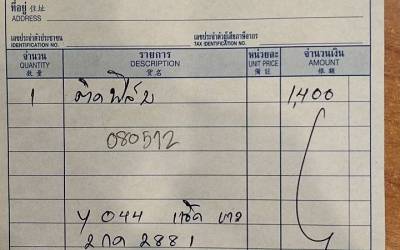 ที่อยู่ 住址
ADDRESS
เลขประจำตัวประชาชน เลขประจำตัวผู้เสียภาษีอากร
IDENTIFICATION NO. TAX IDENTIFICATION NO.
จำนวน รายการ หน่วยละ จำนวนเงิน
QUANTITY DESCRIPTION UNIT PRICE AMOUNT
數量 貨名 備註 銀額
1 ติดฟิล์ม 1,400
080512
 y 044 แช็ค
2 กด 2881